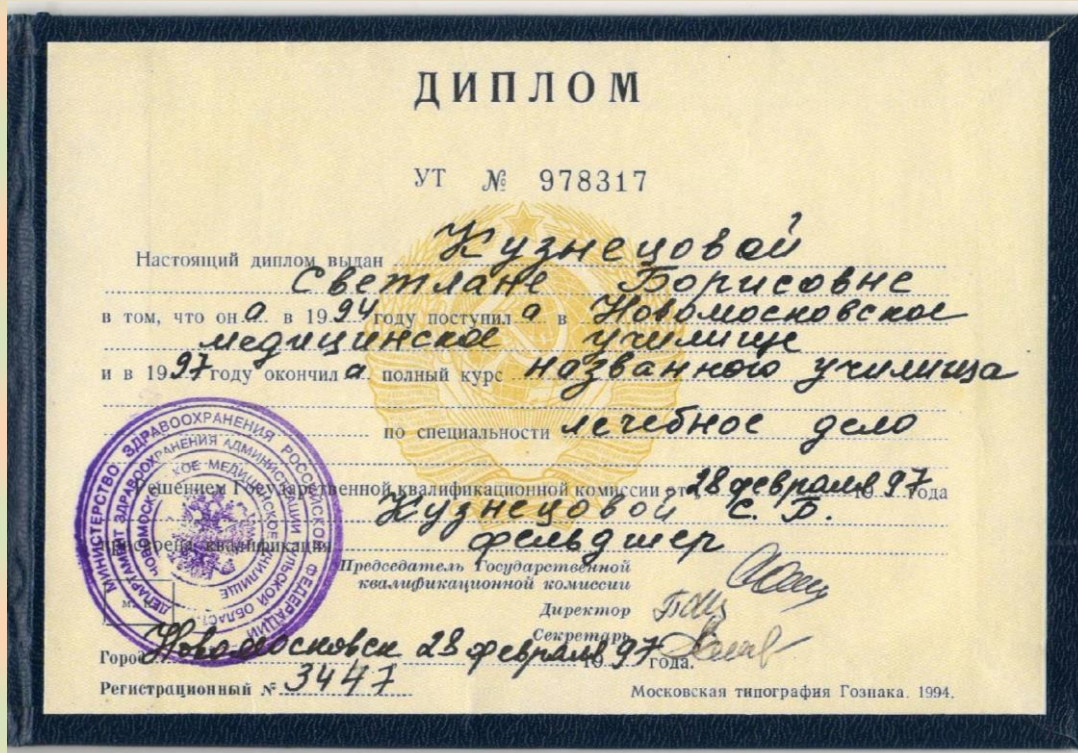 ДИПЛОМ
УТ № 978317
Настоящий диплом выдан Кузнецовой
Светлане Борисовне
в том, что он а в 1994 году поступил а в Новомосковское
медицинское училище
и в 1997 году окончил а полный курс названного училища
по специальности лечебное дело
Решением Государственной квалификационной комиссии от 28 февраля 1997 года
Кузнецовой С. Б.
присвоена квалификация фельдшер
Председатель Государственной
квалификационной комиссии
Директор
Секретарь
Город Новомосковск 28 февраля 1997 года.
Регистрационный № 3447
Московская типография Гознака. 1994.
МИНИСТЕРСТВО ЗДРАВООХРАНЕНИЯ РОССИЙСКОЙ ФЕДЕРАЦИИ
ДЕПАРТАМЕНТ ЗДРАВООХРАНЕНИЯ АДМИНИСТРАЦИИ ТУЛЬСКОЙ ОБЛАСТ.
НОВОМОСКОВСКОЕ МЕДИЦИНСКОЕ УЧИЛИЩЕ